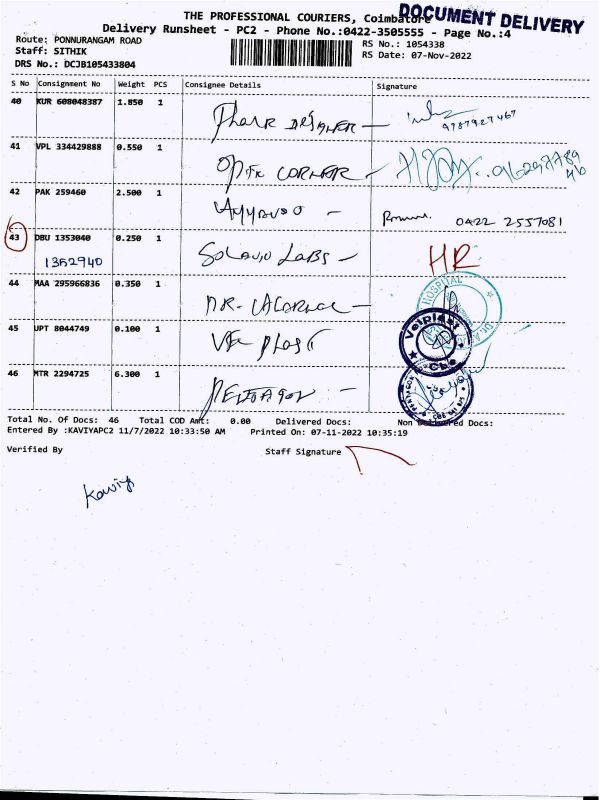 THE PROFESSIONAL COURIERS, Coimbatore
DOCUMENT DELIVERY
Delivery Runsheet - PC2 - Phone No.:0422-3505555 - Page No.:4
Route: PONNURANGAM ROAD
RS No.: 1054338
Staff: SITHIK
RS Date: 07-Nov-2022
DRS No.: DCJB105433804
S No Consignment No Weight PCS Consignee Details Signature
40 KUR 608048387 1.850 1
9787927467
41 VPL 334429888 0.550 1
CORNER
42 PAK 259460 2.500 1
0422 2557081
43 DBU 1353040 0.250 1
1352940 LABS HR
44 MAA 295966836 0.350 1
HOSPITAL
45 UPT 8044749 0.100 1
Velplast
Cbe
46 MTR 2294725 6.300 1
PENTAGON
Total No. Of Docs: 46 Total COD Amt: 0.00 Delivered Docs: Non Delivered Docs:
Entered By :KAVIYAPC2 11/7/2022 10:33:50 AM Printed On: 07-11-2022 10:35:19
Verified By Staff Signature
Kaviya